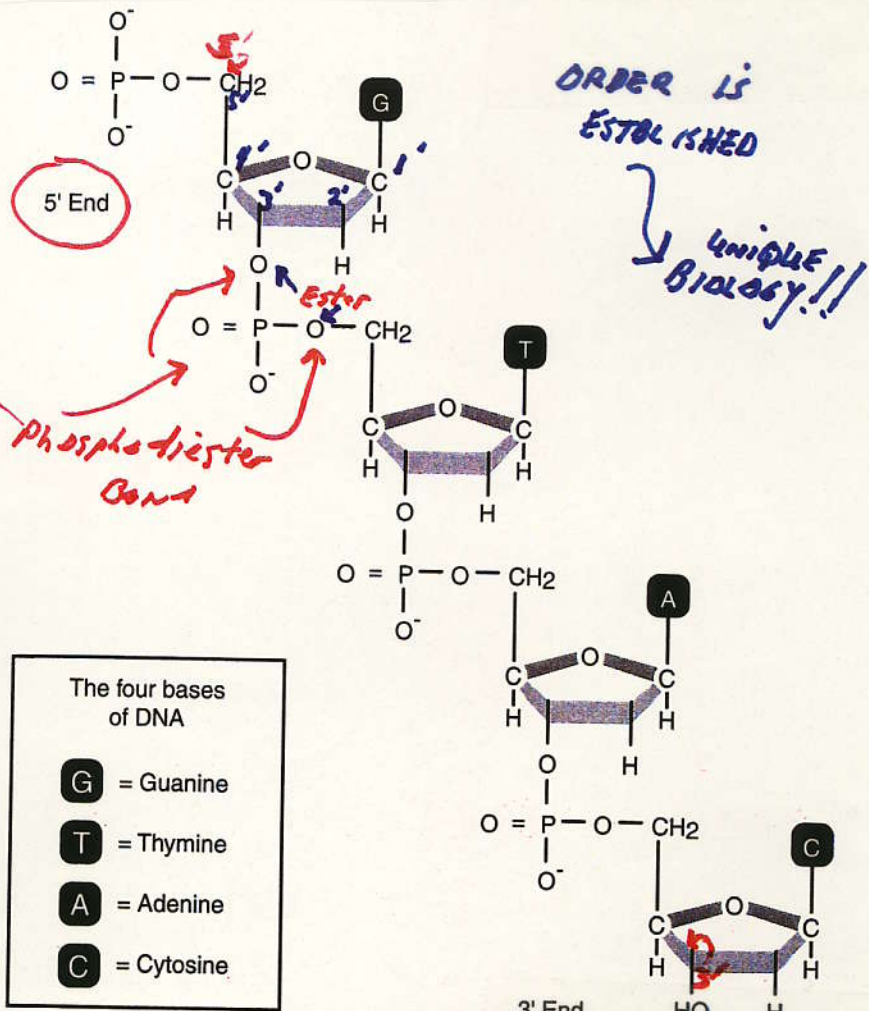 O⁻
O = P — O — CH2
O⁻
5'
5'
G
4'
O
1'
C
C
3'
2'
H
H
5' End
ORDER is
ESTBLISHED
UNIQUE
BIOLOGY!!
O
H
Ester
O = P — O — CH2
O⁻
Phosphodiester
Bond
T
O
C
C
H
H
O
H
O = P — O — CH2
O⁻
A
O
C
C
H
H
O
H
O = P — O — CH2
O⁻
C
O
C
C
H
3'
H
3' End
HO
H
The four bases
of DNA
G = Guanine
T = Thymine
A = Adenine
C = Cytosine